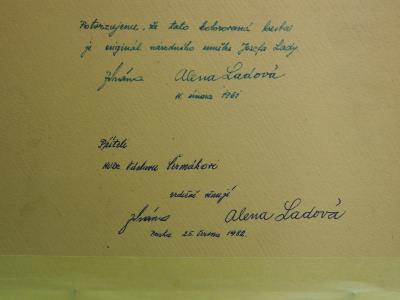 Potvrzujeme, že tato kolorovaná kresba
je originál národního umělce Josefa Lady.
Alena Ladová
11. února 1961
Příteli
MUDr Čermákovi
srdečně věnují
Alena Ladová
25. června 1982.